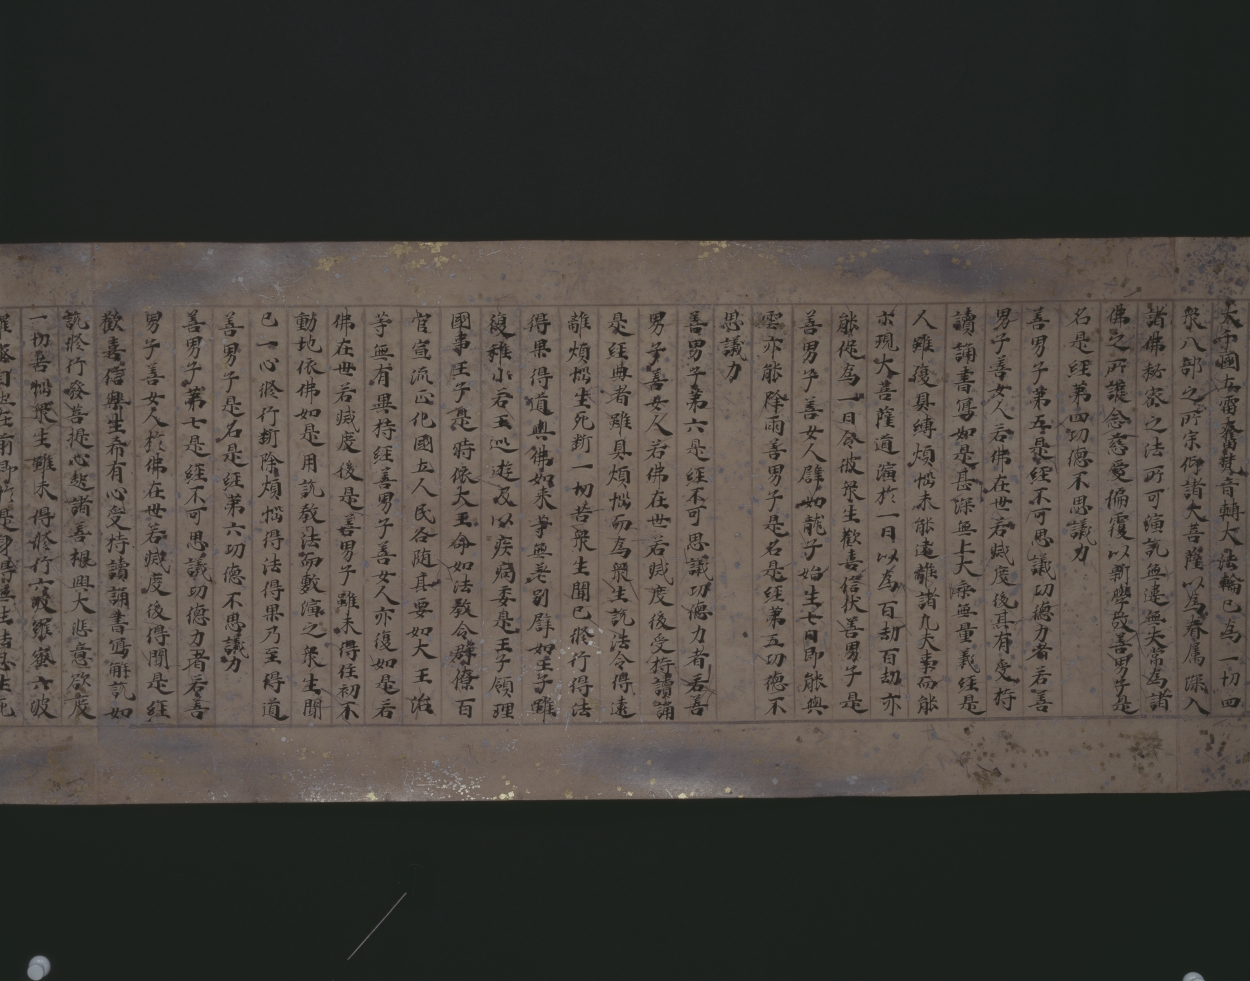 天帝國土雷奮梵音轉大法輪已為一切四
衆八部之所宗仰諸大菩薩以為眷属深入
諸佛秘密之法所可演說無違無失常為諸
佛之所護念慈愛偏覆以新學故善男子是
名是經第四功德不思議力
善男子第五是經不可思議功德力者若善
男子善女人若佛在世若滅度後其有受持
讀誦書寫如是甚深無上大乘無量義經是
人雖復具縛煩惱未能遠離諸凡夫事而能
示現大菩薩道演於一日以為百劫百劫亦
能促為一日令彼衆生歡喜信伏善男子是
善男子善女人譬如龍子始生七日即能興
雲亦能降雨善男子是名是經第五功德不
思議力
善男子第六是經不可思議功德力者若善
男子善女人若佛在世若滅度後受持讀誦
是經典者雖具煩惱而為衆生說法令得遠
離煩惱生死斷一切苦衆生聞已修行得法
得果得道與佛如来等無差別譬如王子雖
復稚小若王巡遊及以疾病委是王子領理
國事王子是時依大王命如法教令群僚百
官宣流正化國土人民各随其要如大王治
等無有異持經善男子善女人亦復如是若
佛在世若滅度後是善男子雖未得住初不
動地依佛如是用說教法而敷演之衆生聞
已一心修行斷除煩惱得法得果乃至得道
善男子是名是經第六功德不思議力
善男子第七是經不可思議功德力者若善
男子善女人於佛在世若滅度後得聞是經
歡喜信樂生希有心受持讀誦書寫解說如
說修行發菩提心起諸善根興大悲意欲度
一切苦惱衆生雖未得修行六波羅蜜六波